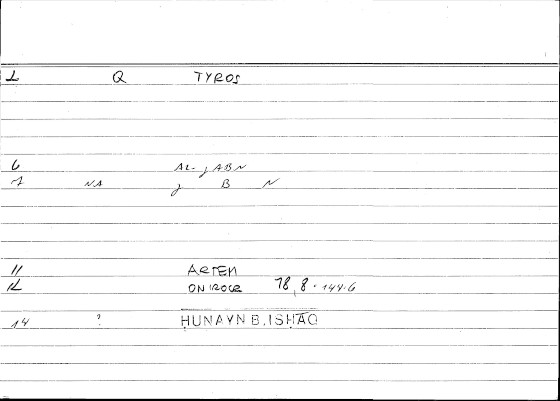 1 Q TYROS
6 AL-ǧABN
7 NA ǧ B N
11 ARTEM
12 ONIROCR 78,8-144.6
14 ? ḤUNAYN B. ISḤĀQ